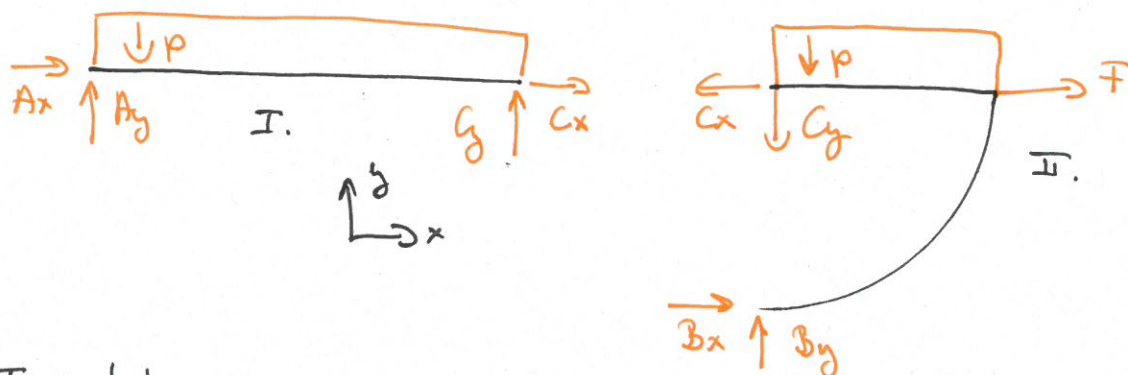 p
Ax
Ay
I.
Cy
Cx
y
x
p
Cx
Cy
F
II.
Bx
By